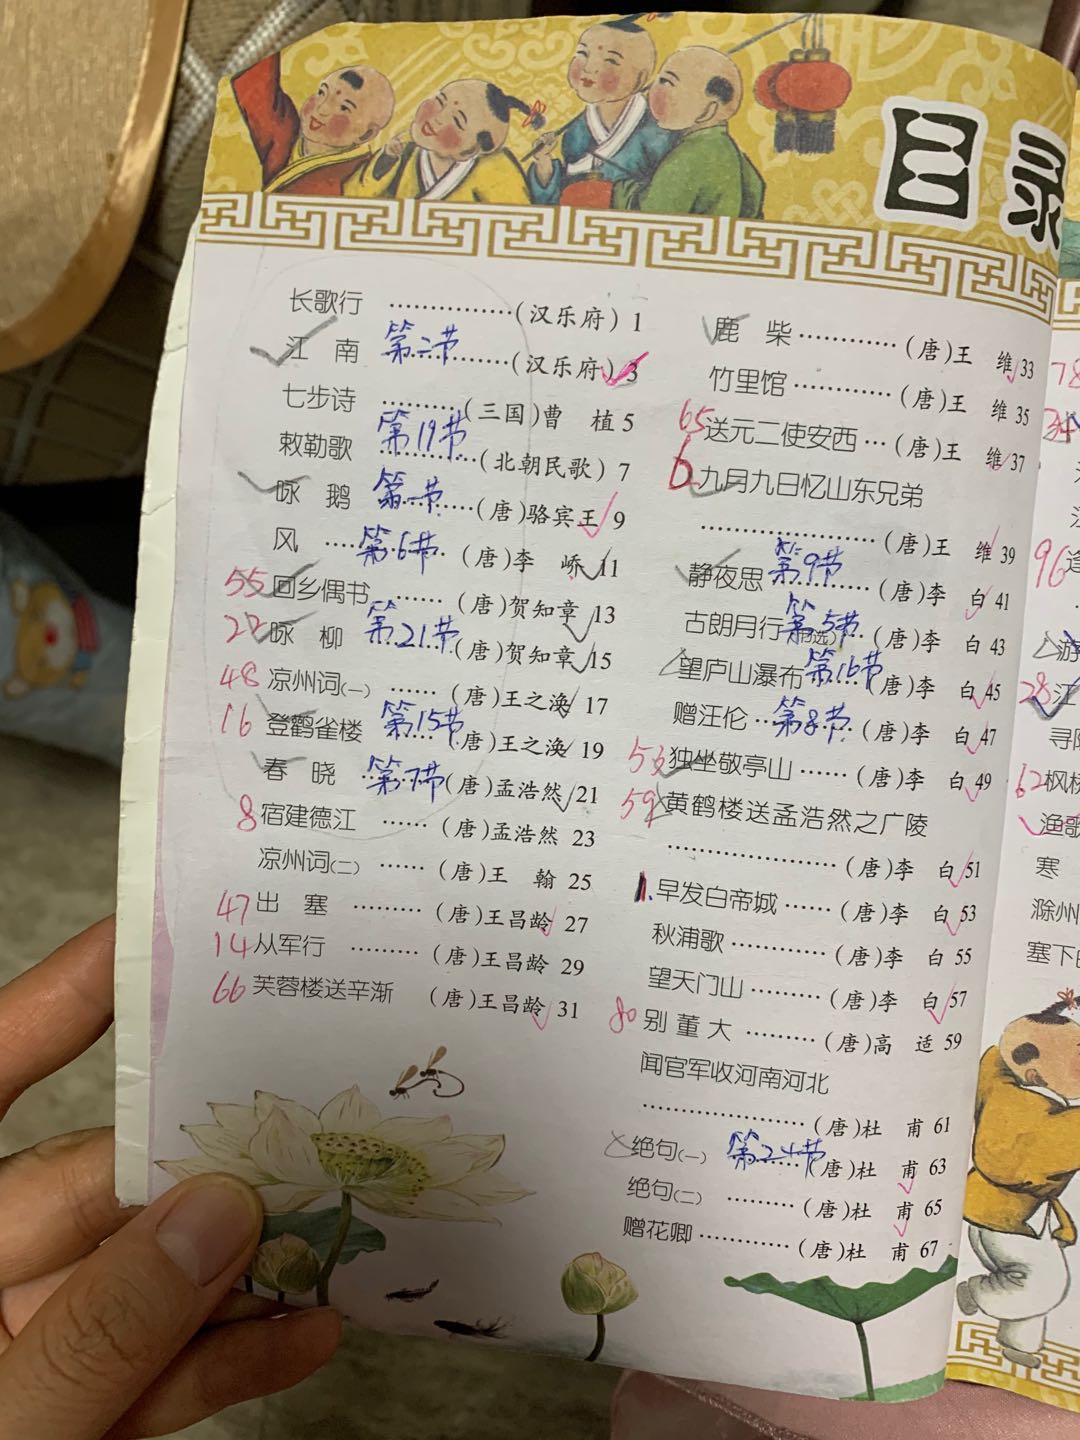 目录
长歌行 ……………(汉乐府) 1
江 南 第二节 ……………(汉乐府) 3
七步诗 ………(三国)曹 植 5
敕勒歌 第19节 …………(北朝民歌) 7
咏 鹅 第一节 ………(唐)骆宾王 9
风 …… 第6节 (唐)李 峤 11
55 回乡偶书 …… (唐)贺知章 13
22 咏 柳 第21节 ……(唐)贺知章 15
48 凉州词(一) …… (唐)王之涣 17
16 登鹳雀楼 第15节 ……(唐)王之涣 19
春 晓 第7节 ……(唐)孟浩然 21
8 宿建德江 …… (唐)孟浩然 23
凉州词(二) …… (唐)王 翰 25
47 出 塞 ……… (唐)王昌龄 27
14 从军行 ……… (唐)王昌龄 29
66 芙蓉楼送辛渐 (唐)王昌龄 31
鹿 柴 ………… (唐)王 维 33
竹里馆 ………… (唐)王 维 35
65 送元二使安西 … (唐)王 维 37
6 九月九日忆山东兄弟
………………… (唐)王 维 39
静夜思 第9节 ………(唐)李 白 41
古朗月行 第5节 …(唐)李 白 43
望庐山瀑布 第16节 …(唐)李 白 45
赠汪伦 第8节 ……(唐)李 白 47
53 独坐敬亭山 …… (唐)李 白 49
59 黄鹤楼送孟浩然之广陵
………………… (唐)李 白 51
1. 早发白帝城 …… (唐)李 白 53
秋浦歌 ………… (唐)李 白 55
望天门山 ……… (唐)李 白 57
80 别董大 ……… (唐)高 适 59
闻官军收河南河北
………………… (唐)杜 甫 61
绝句(一) 第24节 ……(唐)杜 甫 63
绝句(二) ……… (唐)杜 甫 65
赠花卿 ………… (唐)杜 甫 67
78
96
游
28 江
寻
62 枫
渔歌
寒
滁州
塞下